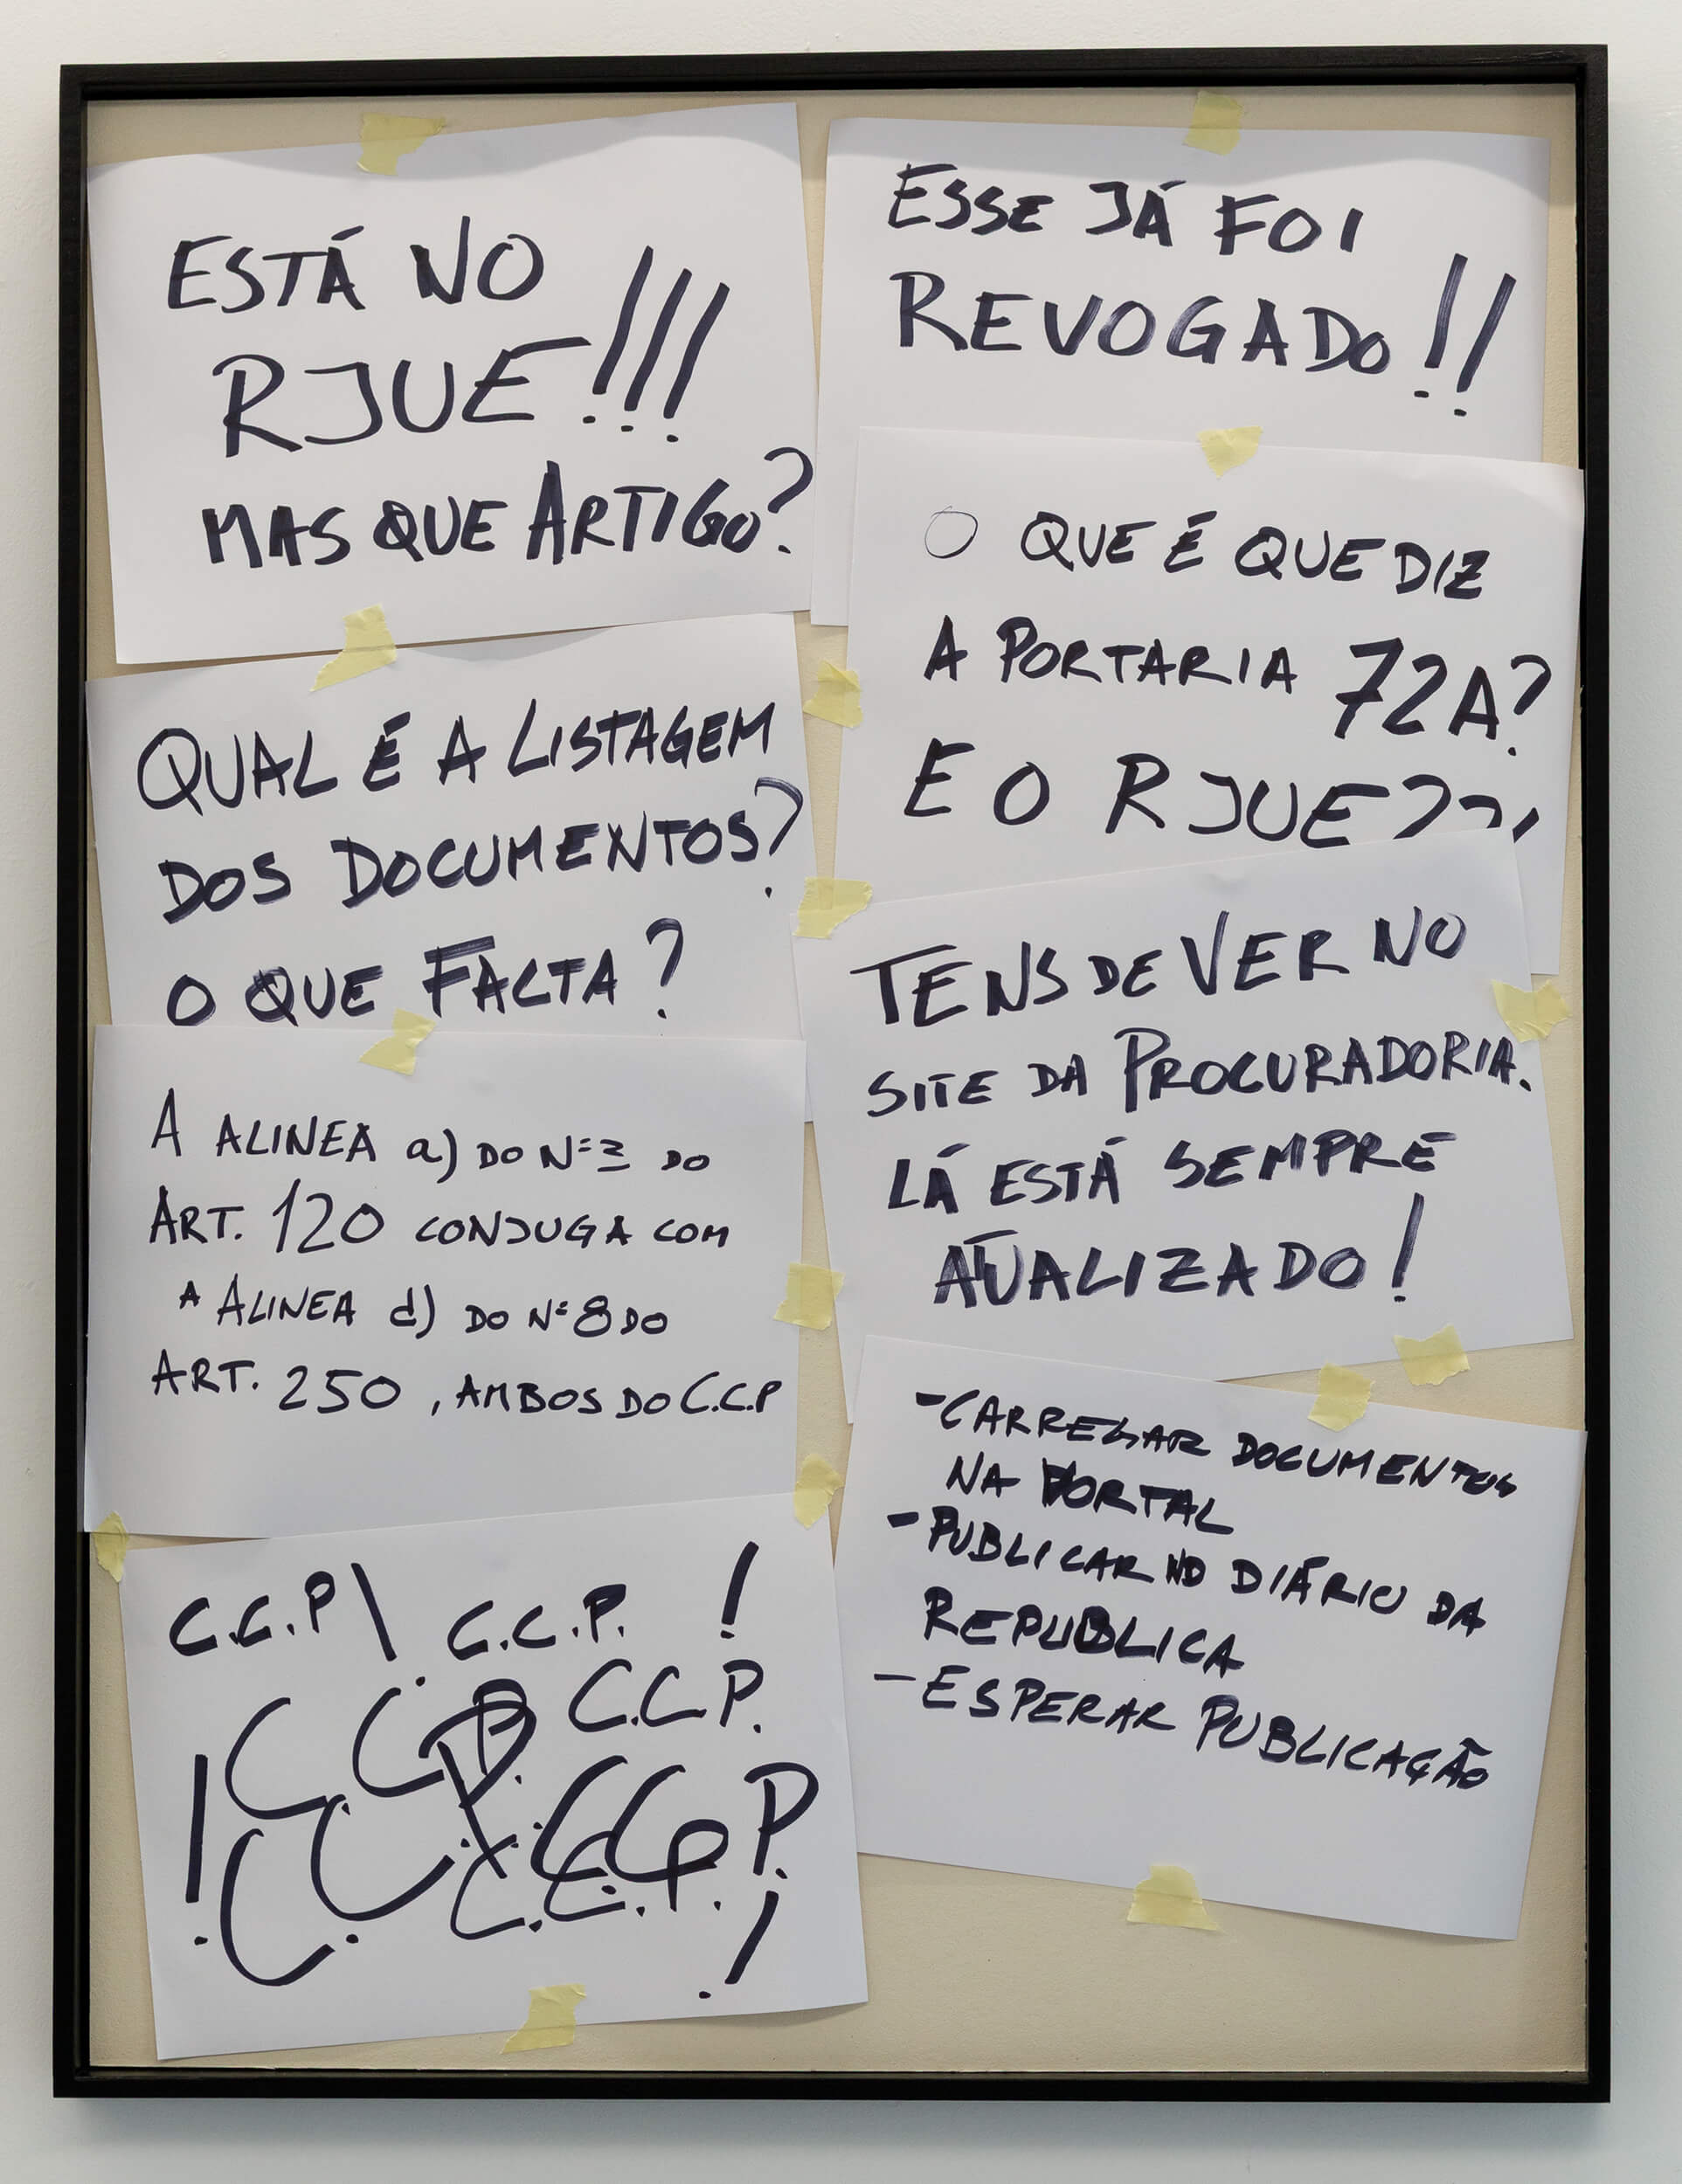 ESTÁ NO
RJUE!!!
MAS QUE ARTIGO?
QUAL É A LISTAGEM
DOS DOCUMENTOS?
O QUE FALTA?
A ALINEA a) DO Nº 3 DO
ART. 120 CONJUGA COM
A ALINEA d) DO Nº 8 DO
ART. 250, AMBOS DO C.C.P
C.C.P! C.C.P. !
C.C.P. C.C.P.
! C.C.P.
C.C.P. !
ESSE JÁ FOI
REVOGADO!!
O QUE É QUE DIZ
A PORTARIA 72A?
E O RJUE???
TENS DE VER NO
SITE DA PROCURADORIA.
LÁ ESTÁ SEMPRE
ATUALIZADO!
- CARREGAR DOCUMENTOS
NA PORTAL
- PUBLICAR NO DIÁRIO DA
REPUBLICA
- ESPERAR PUBLICAÇÃO